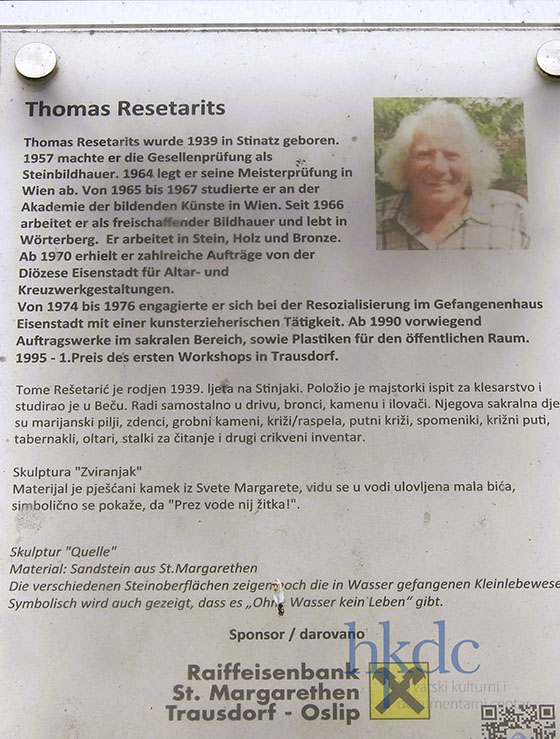 Thomas Resetarits
Thomas Resetarits wurde 1939 in Stinatz geboren.
1957 machte er die Gesellenprüfung als
Steinbildhauer. 1964 legt er seine Meisterprüfung in
Wien ab. Von 1965 bis 1967 studierte er an der
Akademie der bildenden Künste in Wien. Seit 1966
arbeitet er als freischaffender Bildhauer und lebt in
Wörterberg. Er arbeitet in Stein, Holz und Bronze.
Ab 1970 erhielt er zahlreiche Aufträge von der
Diözese Eisenstadt für Altar- und
Kreuzwerkgestaltungen.
Von 1974 bis 1976 engagierte er sich bei der Resozialisierung im Gefangenenhaus
Eisenstadt mit einer kunsterzieherischen Tätigkeit. Ab 1990 vorwiegend
Auftragswerke im sakralen Bereich, sowie Plastiken für den öffentlichen Raum.
1995 - 1.Preis des ersten Workshops in Trausdorf.
Tome Rešetarić je rodjen 1939. ljeta na Stinjaki. Položio je majstorki ispit za klesarstvo i
studirao je u Beču. Radi samostalno u drivu, bronci, kamenu i ilovači. Njegova sakralna dje
su marijanski pilji, zdenci, grobni kameni, križi/raspela, putni križi, spomeniki, križni puti,
tabernakli, oltari, stalki za čitanje i drugi crikveni inventar.
Skulptura "Zviranjak"
Materijal je pješćani kamek iz Svete Margarete, vidu se u vodi ulovljena mala bića,
simbolično se pokaže, da "Prez vode nij žitka!".
Skulptur "Quelle"
Material: Sandstein aus St.Margarethen
Die verschiedenen Steinoberflächen zeigen noch die in Wasser gefangenen Kleinlebewese
Symbolisch wird auch gezeigt, dass es „Ohne Wasser kein Leben“ gibt.
Sponsor / darovano
hkdc
Raiffeisenbank
St. Margarethen
Trausdorf - Oslip
kulturni i